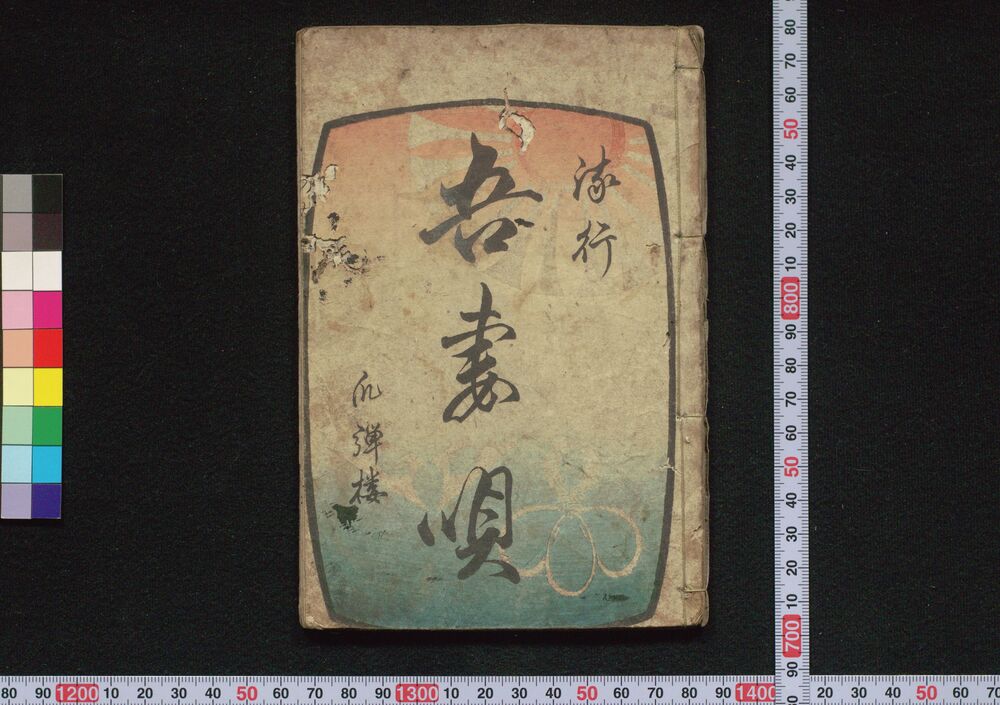 流行
吾妻唄
爪弾楼
80 90 1200 10 20 30 40 50 60 70 80 90 1300 10 20 30 40 50 60 70 80 90 1400 10 20 30 40 50 60 70
80
70
60
50
40
30
20
10
800
90
80
70
60
50
40
30
20
10
700
90